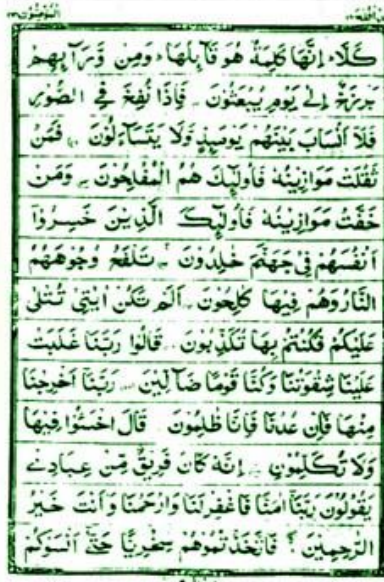 المؤمنون ٢٣
كَلَّا ؕ اِنَّهَا كَلِمَةٌ هُوَ قَآئِلُهَا ؕ وَمِنْ وَّرَآئِهِمْ
بَرْزَخٌ اِلٰى يَوْمِ يُبْعَثُوْنَ فَاِذَا نُفِخَ فِى الصُّوْرِ
فَلَاۤ اَنْسَابَ بَيْنَهُمْ يَوْمَئِذٍ وَّلَا يَتَسَآءَلُوْنَ فَمَنْ
ثَقُلَتْ مَوَازِيْنُهٗ فَاُولٰٓئِكَ هُمُ الْمُفْلِحُوْنَ وَمَنْ
خَفَّتْ مَوَازِيْنُهٗ فَاُولٰٓئِكَ الَّذِيْنَ خَسِرُوْۤا
اَنْفُسَهُمْ فِىْ جَهَنَّمَ خٰلِدُوْنَ تَلْفَحُ وُجُوْهَهُمُ
النَّارُ وَهُمْ فِيْهَا كٰلِحُوْنَ اَلَمْ تَكُنْ اٰيٰتِىْ تُتْلٰى
عَلَيْكُمْ فَكُنْتُمْ بِهَا تُكَذِّبُوْنَ قَالُوْا رَبَّنَا غَلَبَتْ
عَلَيْنَا شِقْوَتُنَا وَكُنَّا قَوْمًا ضَآلِّيْنَ رَبَّنَاۤ اَخْرِجْنَا
مِنْهَا فَاِنْ عُدْنَا فَاِنَّا ظٰلِمُوْنَ قَالَ اخْسَئُوْا فِيْهَا
وَلَا تُكَلِّمُوْنِ اِنَّهٗ كَانَ فَرِيْقٌ مِّنْ عِبَادِىْ
يَقُوْلُوْنَ رَبَّنَاۤ اٰمَنَّا فَاغْفِرْ لَنَا وَارْحَمْنَا وَاَنْتَ خَيْرُ
الرّٰحِمِيْنَ فَاتَّخَذْتُمُوْهُمْ سِخْرِيًّا حَتّٰٓى اَنْسَوْكُمْ